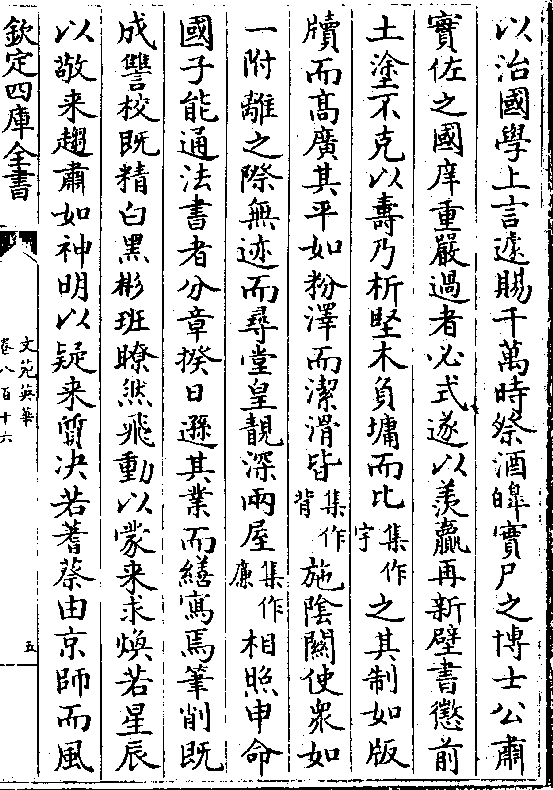 以治國學上言遽賜千萬時祭酒皥實尸之博士公肅
實佐之國庠重嚴過者必式遂以羡贏再新壁書懲前
土塗不克以壽乃析堅木負墉而比集作字之其制如版
牘而髙廣其平如粉澤而潔滑皆集作背施陰闗使衆如
一附離之際無迹而尋堂皇靚深兩屋集作廉相照申命
國子能通法書者分章揆日遜其業而繕寫焉筆削既
成讐校既精白黑彬班瞭然飛動以蒙来求煥若星辰
以敬来趨肅如神明以疑来質决若蓍蔡由京師而風
欽定四庫全書
文苑英華
卷八百十六
五